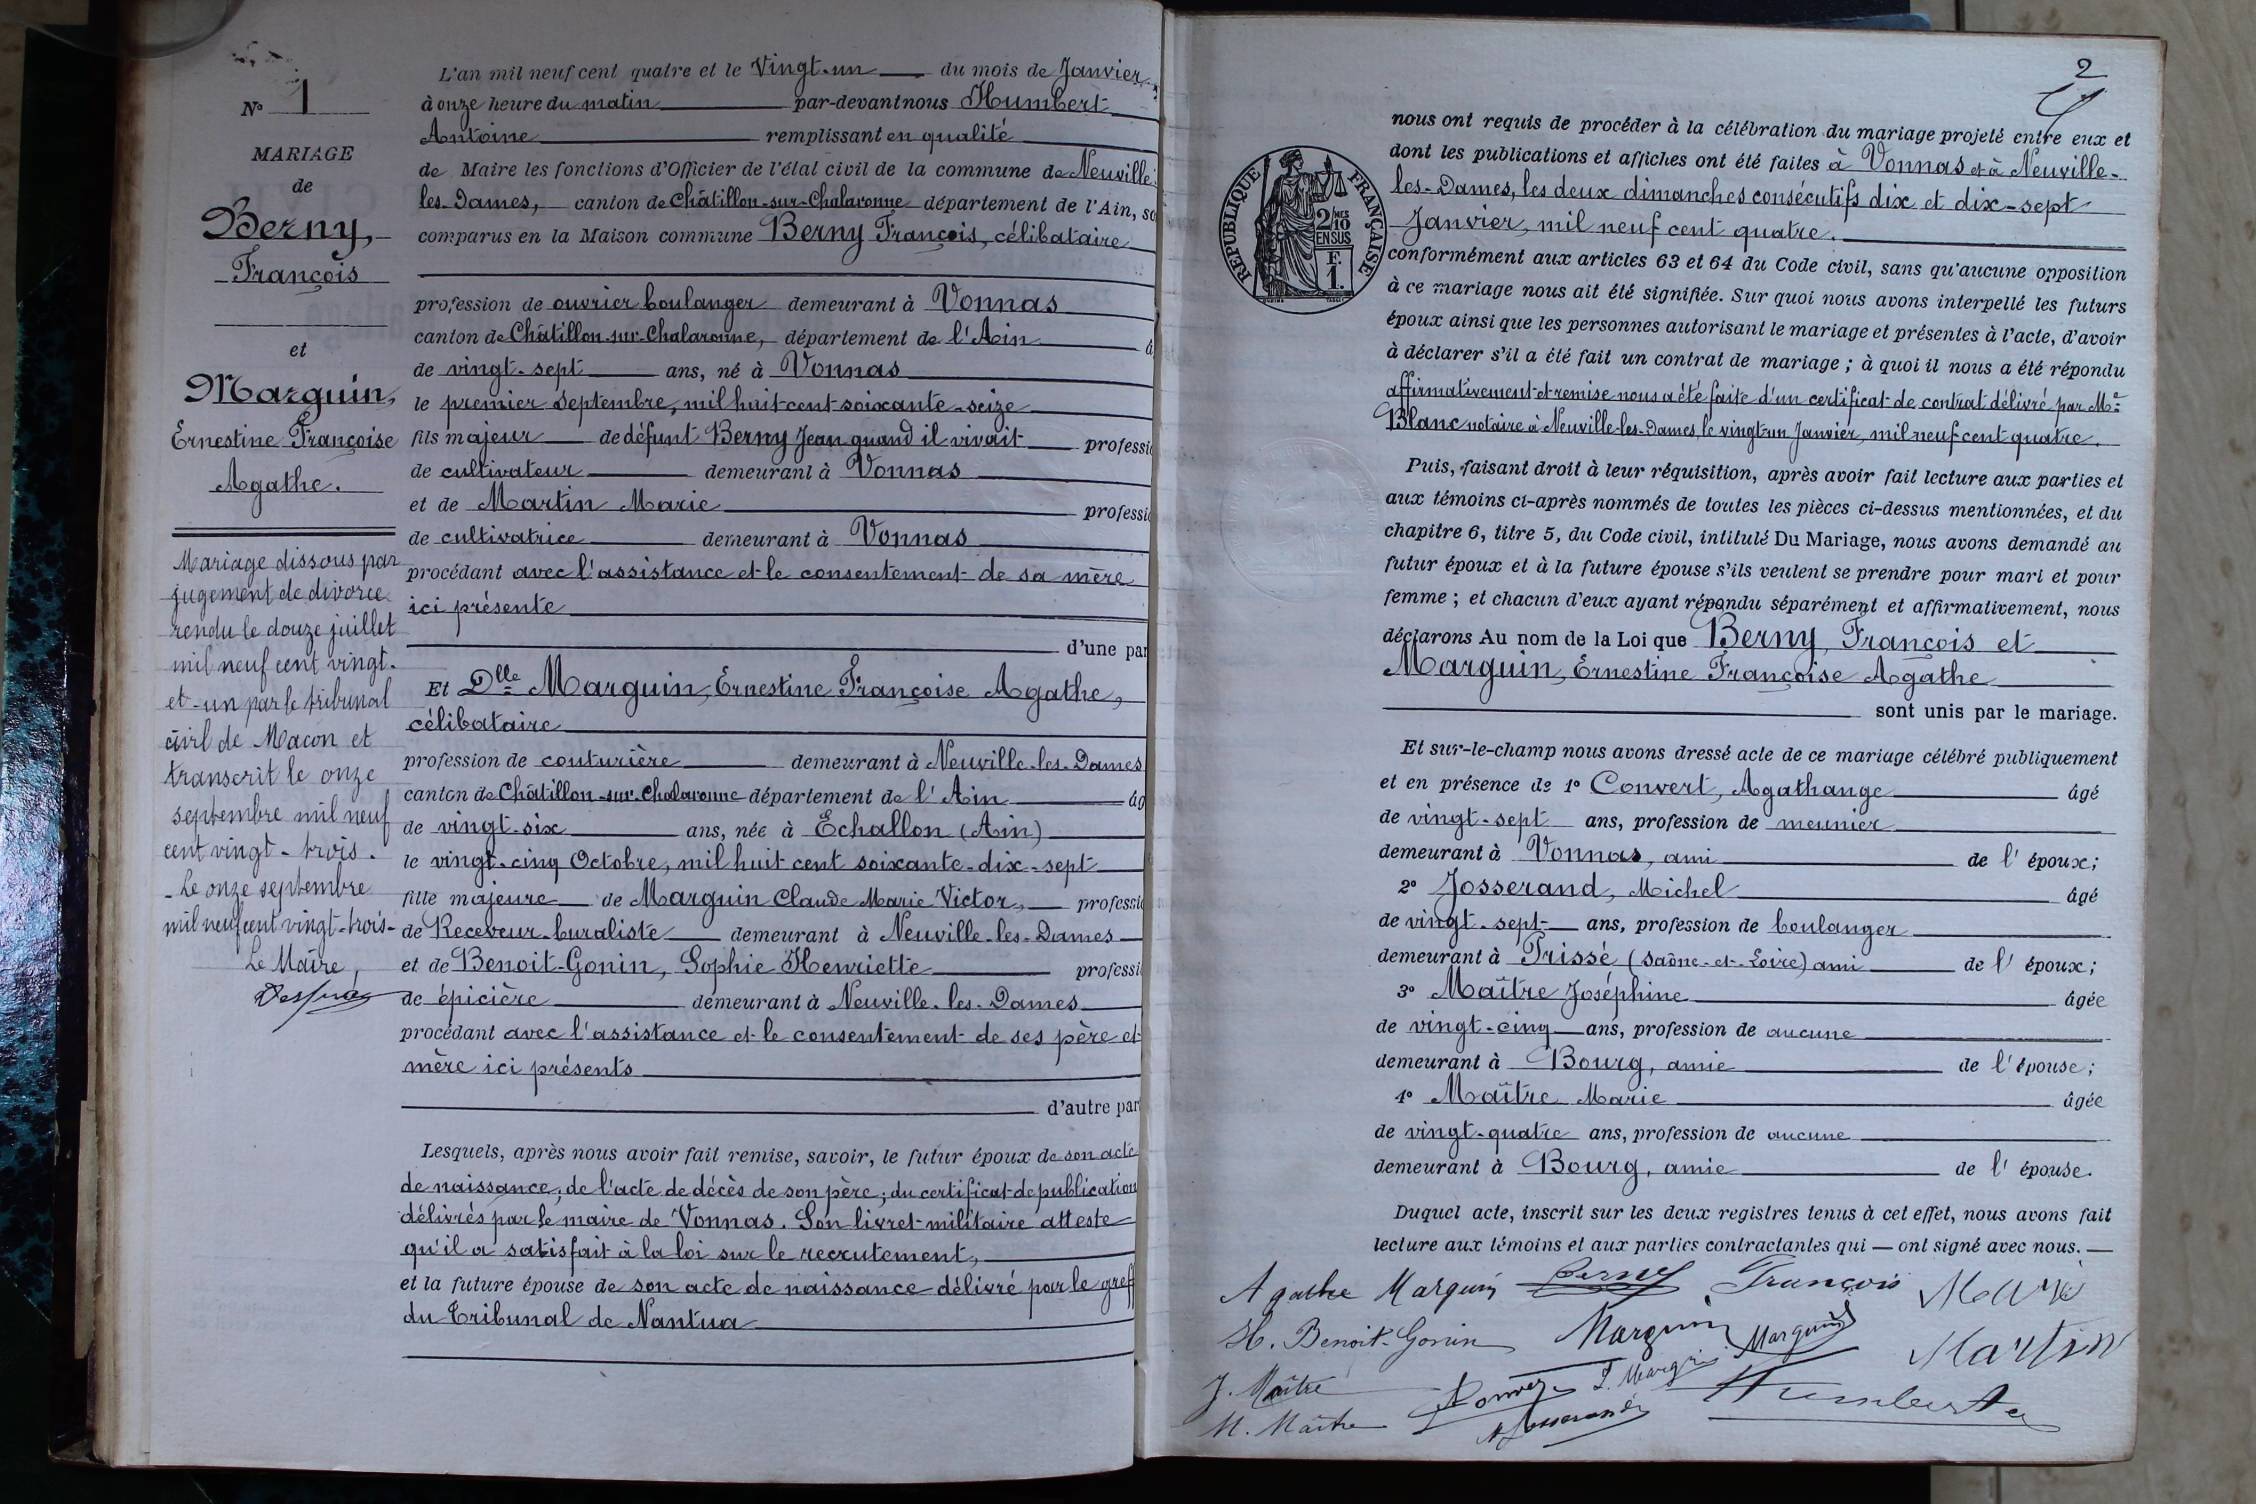 N° 1
MARIAGE
de
Berny,
François
et
Marguin,
Ernestine Françoise
Agathe.
Mariage dissous par
jugement de divorce
rendu le douze juillet
mil neuf cent vingt-
et-un par le tribunal
civil de Macon et
transcrit le onze
septembre mil neuf
cent vingt-trois.
Le onze septembre
mil neuf cent vingt-trois-
Le Maire,
L'an mil neuf cent quatre et le Vingt-un du mois de Janvier
à onze heure du matin par-devant nous Humbert
Antoine remplissant en qualité
de Maire les fonctions d'Officier de l'état civil de la commune de Neuville-
les-Dames, canton de Châtillon-sur-Chalaronne département de l'Ain, so
comparus en la Maison commune Berny François, célibataire
profession de ouvrier boulanger demeurant à Vonnas
canton de Châtillon-sur-Chalaronne, département de l'Ain â
de vingt-sept ans, né à Vonnas
le premier Septembre, mil huit cent soixante-seize
fils majeur de défunt Berny Jean quand il vivait professi
de cultivateur demeurant à Vonnas
et de Martin Marie professi
de cultivatrice demeurant à Vonnas
procédant avec l'assistance et le consentement de sa mère
ici présente
d'une par
Et Dlle Marguin, Ernestine Françoise Agathe,
célibataire
profession de couturière demeurant à Neuville-les-Dames
canton de Châtillon-sur-Chalaronne département de l'Ain âg
de vingt-six ans, née à Échallon (Ain)
le vingt-cinq Octobre, mil huit cent soixante-dix-sept
fille majeure de Marguin Claude Marie Victor, professio
de Receveur-buraliste demeurant à Neuville-les-Dames
et de Benoit-Gonin, Sophie Henriette professi
de épicière demeurant à Neuville-les-Dames
procédant avec l'assistance et le consentement de ses père et
mère ici présents
d'autre par
Lesquels, après nous avoir fait remise, savoir, le futur époux de son acte
de naissance; de l'acte de décès de son père; du certificat de publication
délivrés par le maire de Vonnas. Son livret militaire atteste
qu'il a satisfait à la loi sur le recrutement,
et la future épouse de son acte de naissance délivré par le greff
du Tribunal de Nantua
2
RÉPUBLIQUE FRANÇAISE
2/10 MES
EN SUS
F.
1.
nous ont requis de procéder à la célébration du mariage projeté entre eux et
dont les publications et affiches ont été faites à Vonnas et à Neuville-
les-Dames, les deux dimanches consécutifs dix et dix-sept
Janvier, mil neuf cent quatre.
conformément aux articles 63 et 64 du Code civil, sans qu'aucune opposition
à ce mariage nous ait été signifiée. Sur quoi nous avons interpellé les futurs
époux ainsi que les personnes autorisant le mariage et présentes à l'acte, d'avoir
à déclarer s'il a été fait un contrat de mariage; à quoi il nous a été répondu
affirmativement et remise nous a été faite d'un certificat de contrat délivré par Me
Blanc notaire à Neuville-les-Dames, le vingt-un Janvier, mil neuf cent quatre.
Puis, faisant droit à leur réquisition, après avoir fait lecture aux parties et
aux témoins ci-après nommés de toutes les pièces ci-dessus mentionnées, et du
chapitre 6, titre 5, du Code civil, intitulé Du Mariage, nous avons demandé au
futur époux et à la future épouse s'ils veulent se prendre pour mari et pour
femme; et chacun d'eux ayant répondu séparément et affirmativement, nous
déclarons Au nom de la Loi que Berny, François et
Marguin, Ernestine Françoise Agathe
sont unis par le mariage.
Et sur-le-champ nous avons dressé acte de ce mariage célébré publiquement
et en présence de 1° Convert, Agathange âgé
de vingt-sept ans, profession de meunier
demeurant à Vonnas, ami de l'époux;
2° Josserand, Michel âgé
de vingt-sept ans, profession de boulanger
demeurant à Prissé (Saône-et-Loire) ami de l'époux;
3° Maître Joséphine âgée
de vingt-cinq ans, profession de aucune
demeurant à Bourg, amie de l'épouse;
4° Maître Marie âgée
de vingt-quatre ans, profession de aucune
demeurant à Bourg, amie de l'épouse.
Duquel acte, inscrit sur les deux registres tenus à cet effet, nous avons fait
lecture aux témoins et aux parties contractantes qui — ont signé avec nous.
Agathe Marguin Berny François Marie
H. Benoit-Gonin Marguin Marguin Martin
J. Maître Convert Humbert
M. Maître Josserand